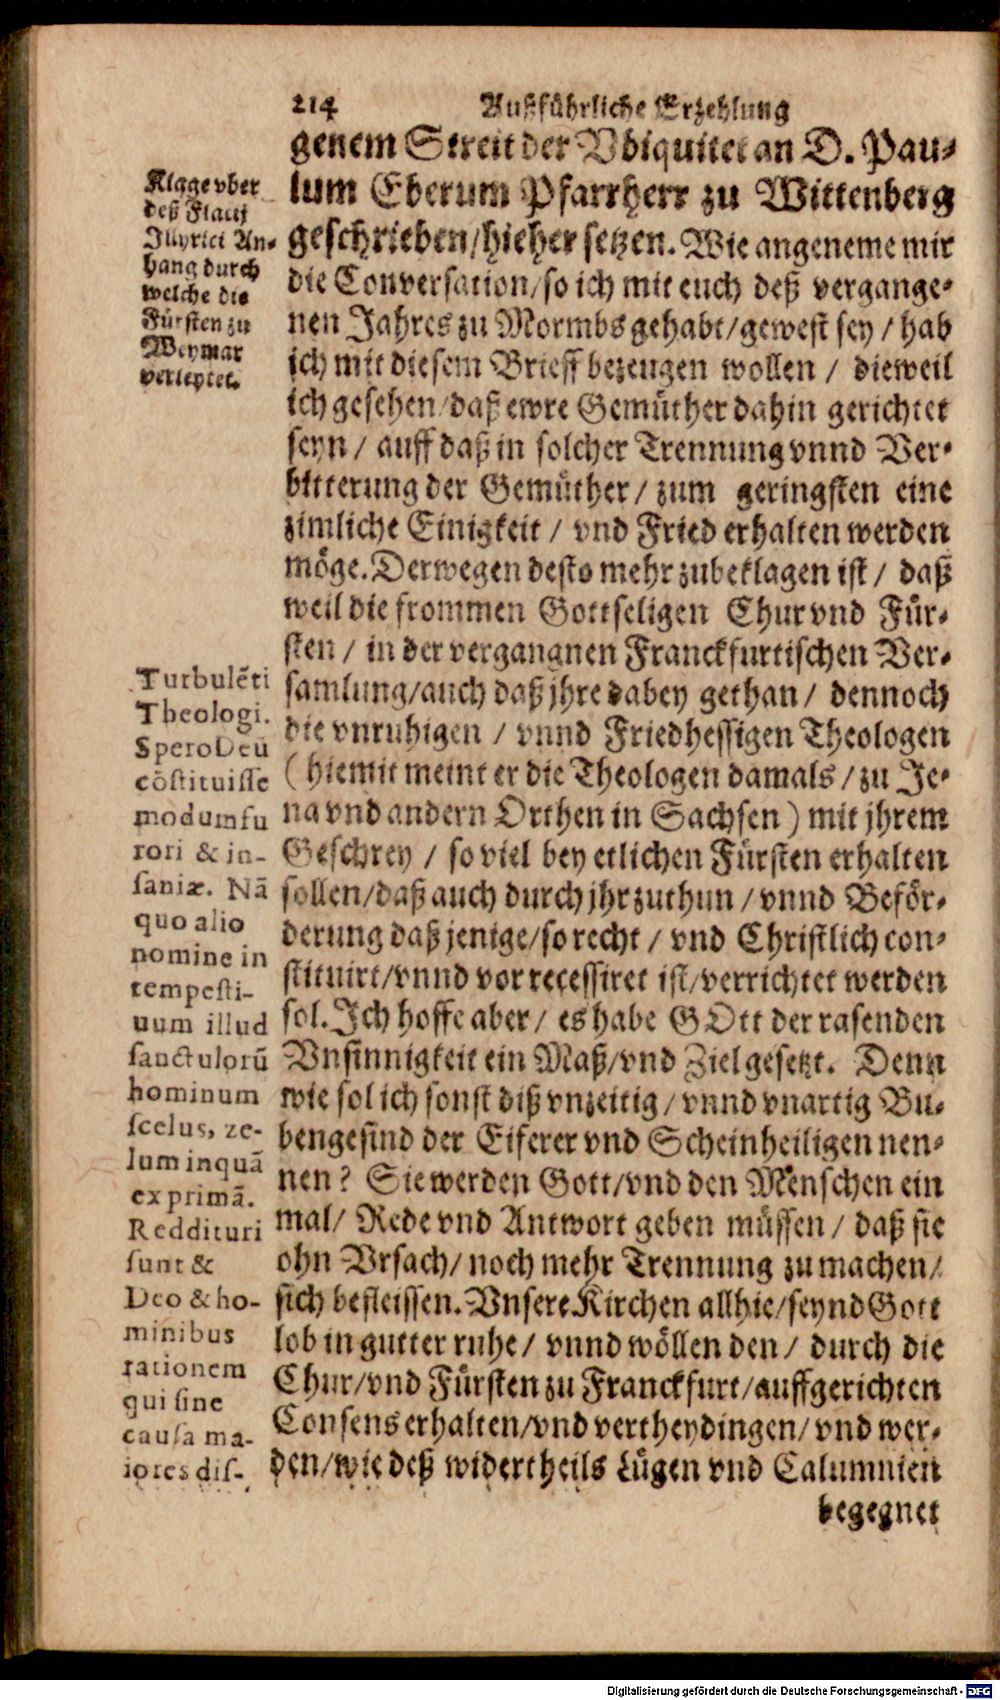 214 Außführliche Erzehlung
genem Streit der Vbiquitet an D. Pau-
lum Eberum Pfarrherr zu Wittenberg
geschrieben/hieher setzen. Wie angeneme mir
die Conversation/so ich mit euch deß vergange-
nen Jahres zu Wormbs gehabt/gewest sey / hab
ich mit diesem Brieff bezeugen wollen / dieweil
ich gesehen/daß ewre Gemüther dahin gerichtet
seyn / auff daß in solcher Trennung vnnd Ver-
bitterung der Gemüther / zum geringsten eine
zimliche Einigkeit / vnd Fried erhalten werden
möge. Derwegen desto mehr zubeklagen ist / daß
weil die frommen Gottseligen Chur vnd Für-
sten / in der vergangnen Franckfurtischen Ver-
samlung/auch daß jhre dabey gethan / dennoch
die vnruhigen / vnnd Friedhessigen Theologen
( hiemit meint er die Theologen damals / zu Je-
na vnd andern Orthen in Sachsen ) mit jhrem
Geschrey / so viel bey etlichen Fürsten erhalten
sollen/daß auch durch jhr zuthun / vnnd Beför-
derung daß jenige/so recht / vnd Christlich con-
stituirt/vnnd vor recessiret ist/verrichtet werden
sol. Ich hoffe aber / es habe GOtt der rasenden
Vnsinnigkeit ein Maß/vnd Ziel gesetzt. Denn
wie sol ich sonst diß vnzeitig / vnnd vnartig Bu-
bengesind der Eiferer vnd Scheinheiligen nen-
nen? Sie werden Gott/vnd den Menschen ein
mal/ Rede vnd Antwort geben müssen / daß sie
ohn Vrsach/ noch mehr Trennung zu machen/
sich befleissen. Vnsere Kirchen allhie/seynd Gott
lob in gutter ruhe / vnnd wöllen den / durch die
Chur/vnd Fürsten zu Franckfurt/auffgerichten
Consens erhalten/vnd vertheydingen/ vnd wer-
den/wie deß widertheils Lügen vnd Calumnien
begegnet
Klage vber
deß Flacij
Illyrici An-
hang durch
welche die
Fürsten zu
Weymar
verleytet.
Turbulẽti
Theologi.
Spero Deũ
cõstituisse
modum fu
rori & in-
saniæ. Nã
quo alio
nomine in
tempesti-
uum illud
sanctulorũ
hominum
scelus, ze-
lum inquã
exprimã.
Reddituri
sunt &
Deo & ho-
minibus
rationem
qui sine
causa ma-
iores dis-
Digitalisierung gefördert durch die Deutsche Forschungsgemeinschaft - DFG